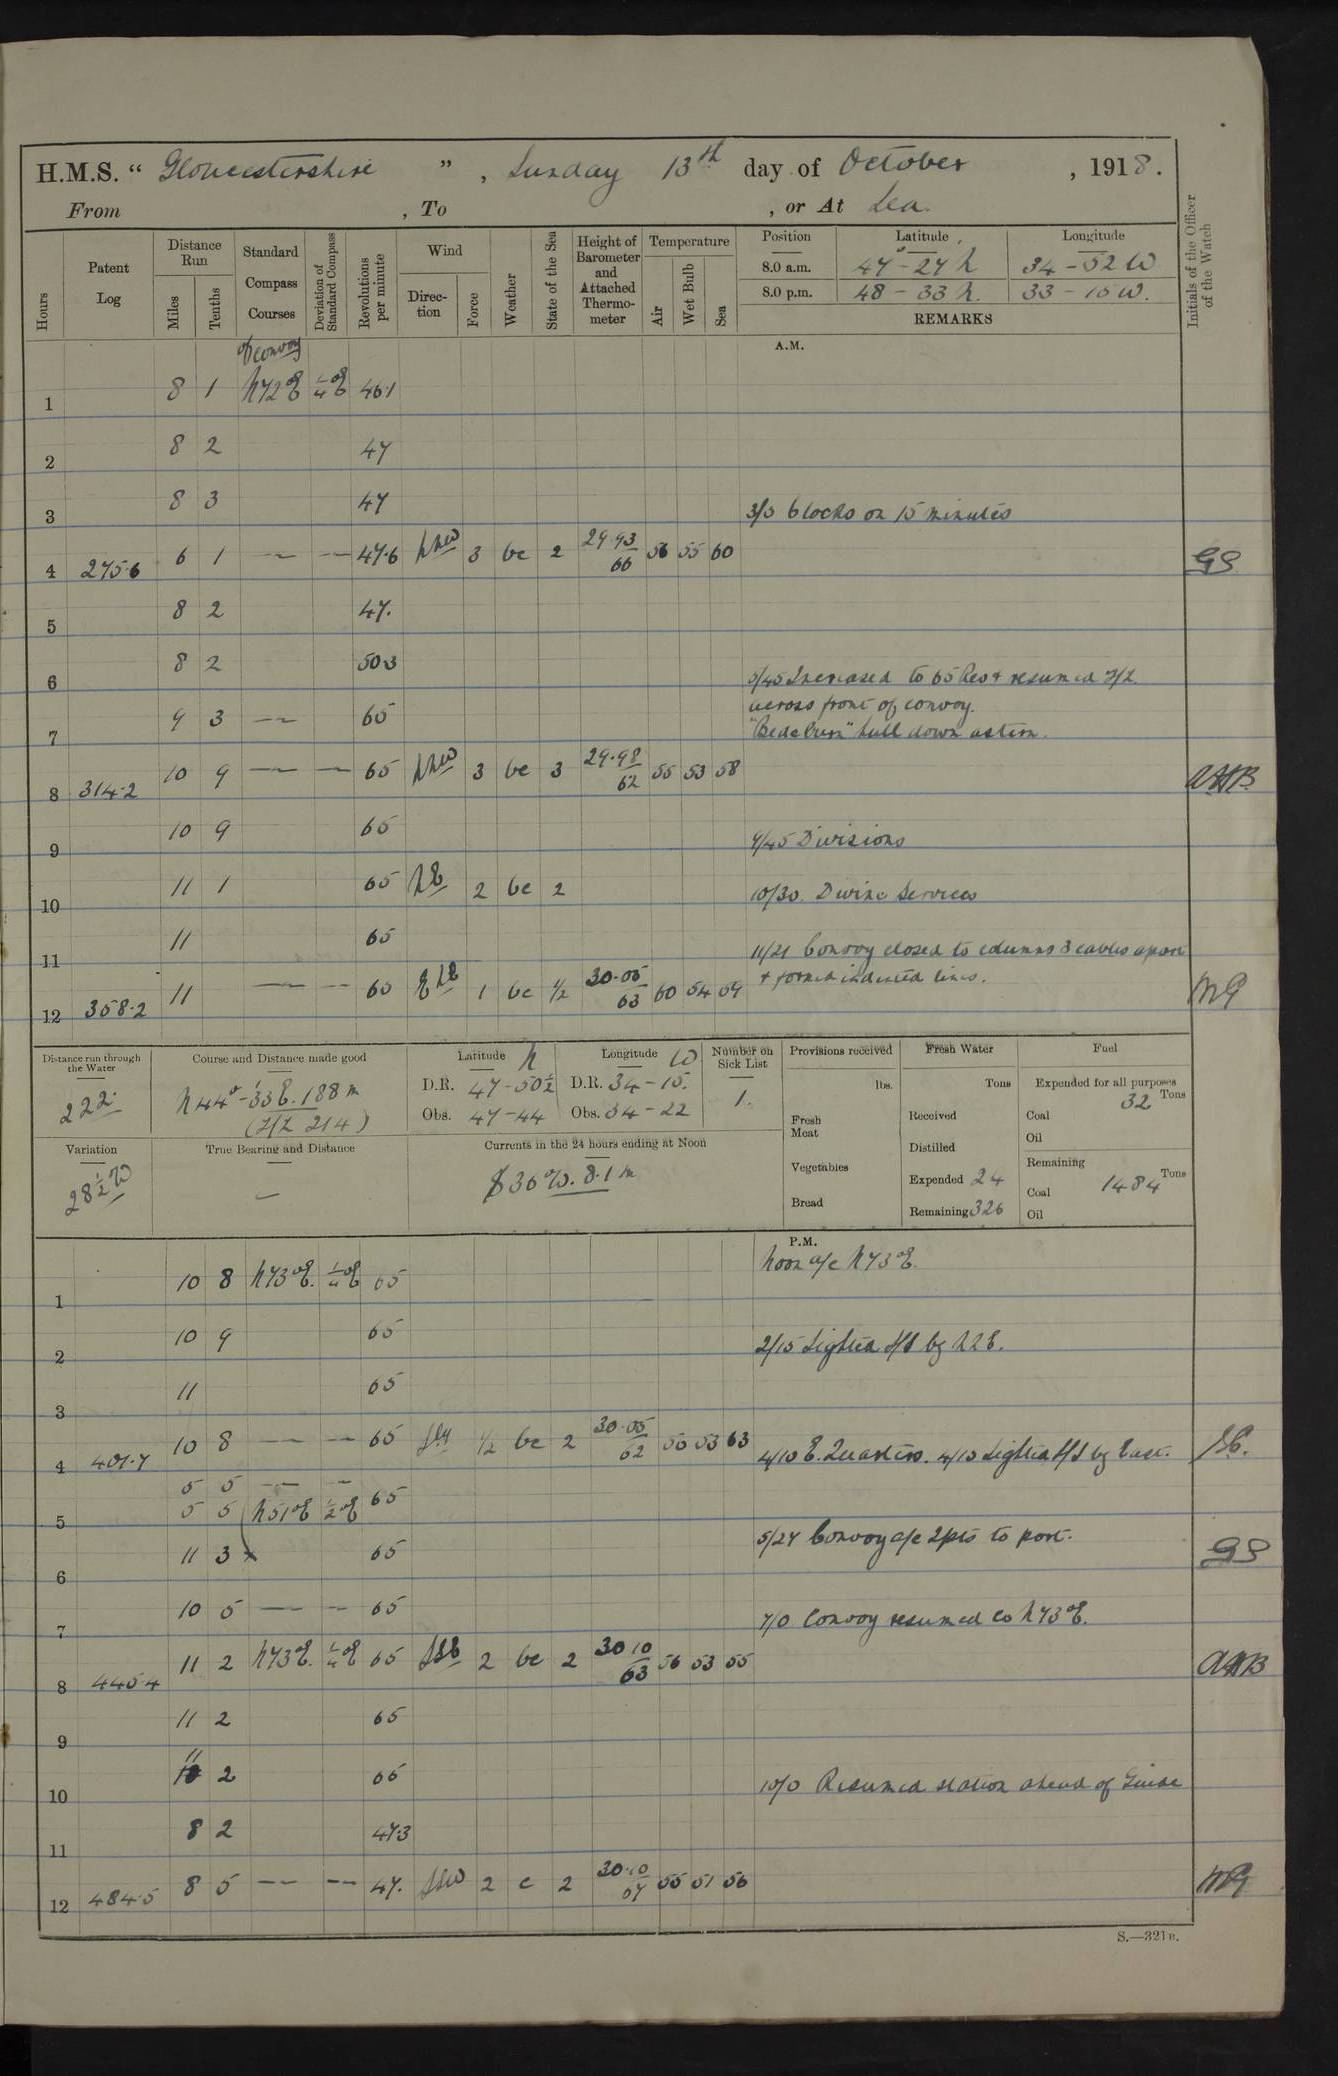 H.M.S. “ Gloucestershire ” , Sunday 13th day of October , 1918.
From , To , or At Sea.
Hours Patent Log Distance Run Miles Tenths Standard Compass Courses Deviation of Standard Compass Revolutions per minute Wind Direction Force Weather State of the Sea Height of Barometer and Attached Thermometer Temperature Air Wet Bulb Sea Position Latitude Longitude Initials of the Officer of the Watch
8.0 a.m. 47-27 N 34-52 W
8.0 p.m. 48-33 N. 33-15 W.
REMARKS
A.M.
of convoy
1 8 1 N72°E ¼°E 46.1
2 8 2 47
3 8 3 47 3/3 Clocks on 15 minutes
4 275.6 6 1 — — 47.6 NNW 3 bc 2 29.93 66 56 55 60 GS
5 8 2 47.
6 8 2 50.3 5/45 Increased to 65 Revs & resumed Z/Z
across front of convoy.
7 9 3 — 65 hull down astern.
8 314.2 10 9 — — 65 NNW 3 bc 3 29.98 62 55 53 58 AHB
9 10 9 65 9/45 Divisions
10 11 1 65 NE 2 bc 2 10/30. Divine Services
11 11 65 11/21 Convoy closed to columns 3 cables apart
& formed indented lines.
12 358.2 11 — — 65 1 bc ½ 30.05 63 60 54 59
Distance run through the Water
222.
Course and Distance made good
N44°-33'E. 188 m
(Z/Z 214)
Latitude N Longitude W
D.R. 47-50½ D.R. 34-15.
Obs. 47-44 Obs. 34-22
Number on Sick List
1.
Provisions received
lbs.
Fresh Meat
Vegetables
Bread
Fresh Water
Tons
Received
Distilled
Expended 24
Remaining 326
Fuel
Expended for all purposes
Tons
Coal 32
Oil
Remaining
Tons
Coal 1484
Oil
Variation
28½ W
True Bearing and Distance
—
Currents in the 24 hours ending at Noon
S36°W. 8.1 m
P.M.
Noon a/c N73°E.
1 10 8 N73°E. ¼°E 65
2 10 9 65 2/15 Sighted S/S by NNE.
3 11 65
4 401.7 10 8 — — 65 Sly ½ bc 2 30.05 62 55 53 63 4/10 E. Quarters. 4/10 Sighted S/S by East.
5 5 — —
5 5 5 N51°E ½°E 65 5/27 Convoy a/c 2pts to port.
6 11 3 65 GS
7 10 5 — — 65 7/0 Convoy resumed Co N73°E.
8 445.4 11 2 N73°E. ¼°E 65 SSE 2 bc 2 30.10 63 56 53 55 AHB
9 11 2 65
10 11 2 65 10/0 Resumed station ahead of Guide
11 8 2 47.3
12 484.5 8 5 — — 47. SSW 2 c 2 30.10 67 55 51 56
S.—321B.